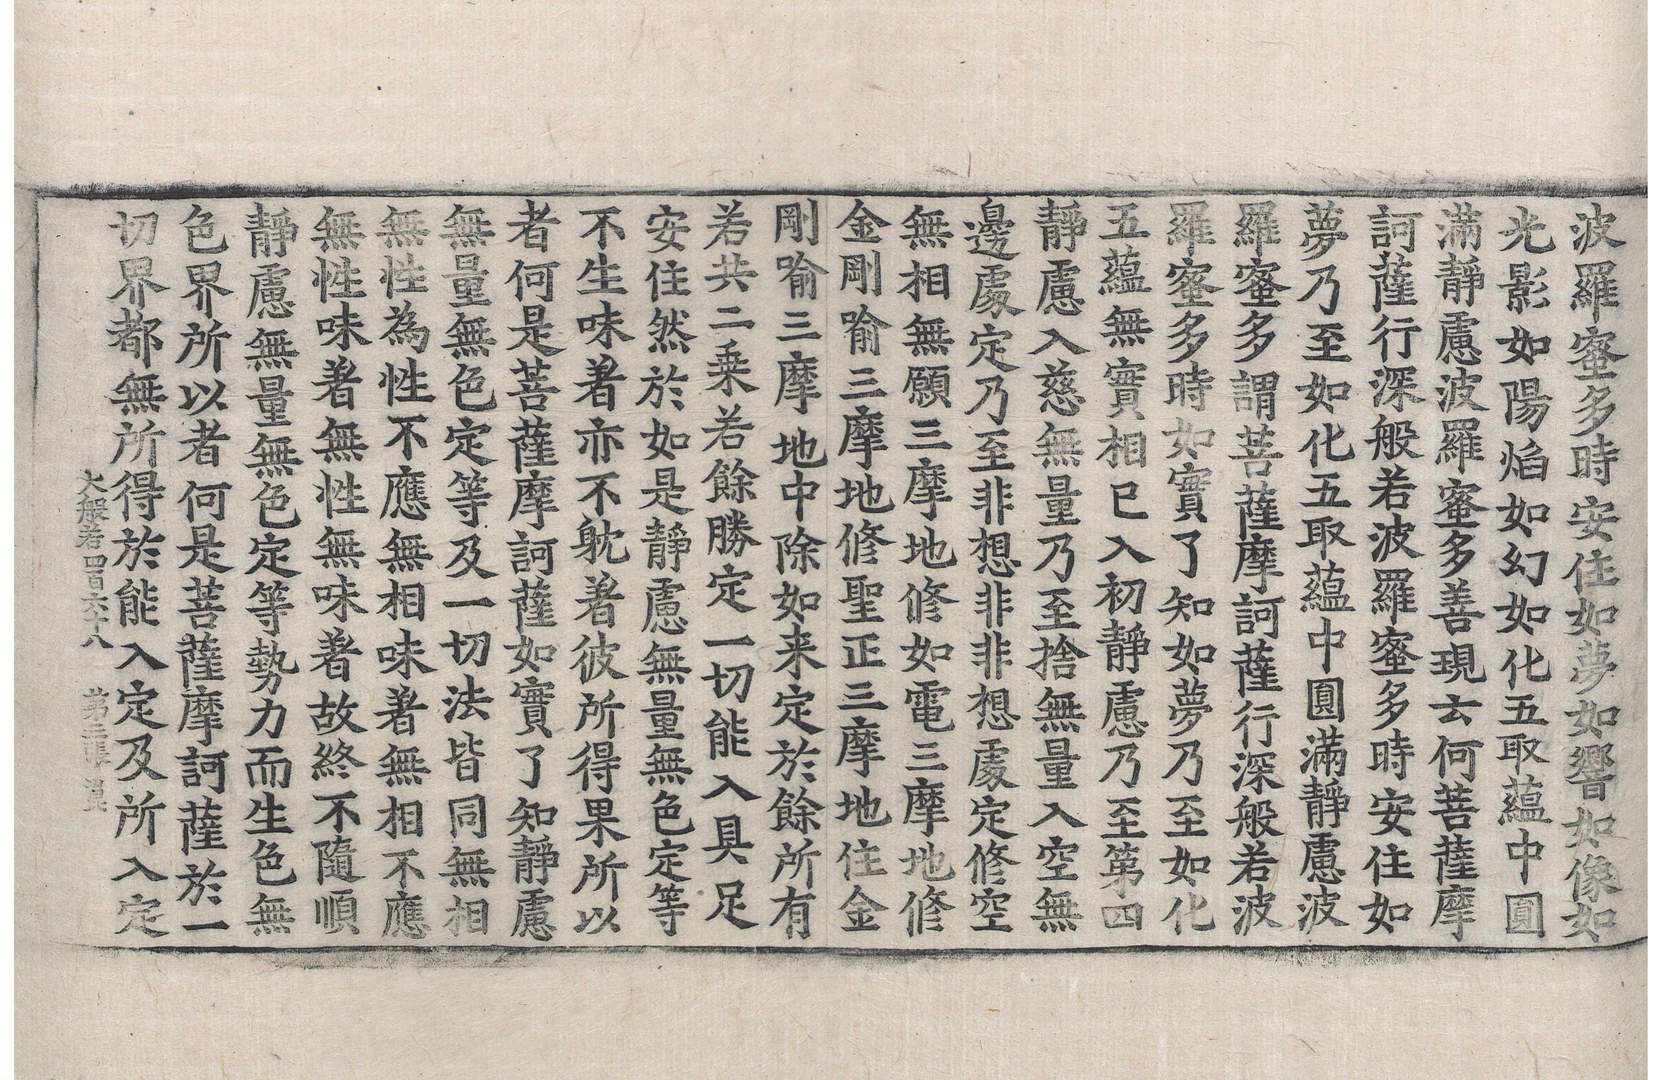 波羅蜜多時安住如夢如響如像如
光影如陽焰如幻如化五取蘊中圓
滿靜慮波羅蜜多善現云何菩薩摩
訶薩行深般若波羅蜜多時安住如
夢乃至如化五取蘊中圓滿靜慮波
羅蜜多謂菩薩摩訶薩行深般若波
羅蜜多時如實了知如夢乃至如化
五蘊無實相已入初靜慮乃至第四
靜慮入慈無量乃至捨無量入空無
邊處定乃至非想非非想處定修空
無相無願三摩地修如電三摩地修
金剛喻三摩地修聖正三摩地住金
剛喻三摩地中除如来定於餘所有
若共二乗若餘勝定一切能入具足
安住然於如是靜慮無量無色定等
不生味著亦不躭著彼所得果所以
者何是菩薩摩訶薩如實了知靜慮
無量無色定等及一切法皆同無相
無性為性不應無相味著無相不應
無性味著無性無味著故終不隨順
靜慮無量無色定等勢力而生色無
色界所以者何是菩薩摩訶薩於一
切界都無所得於能入定及所入定
大般若四百六十八 第三張